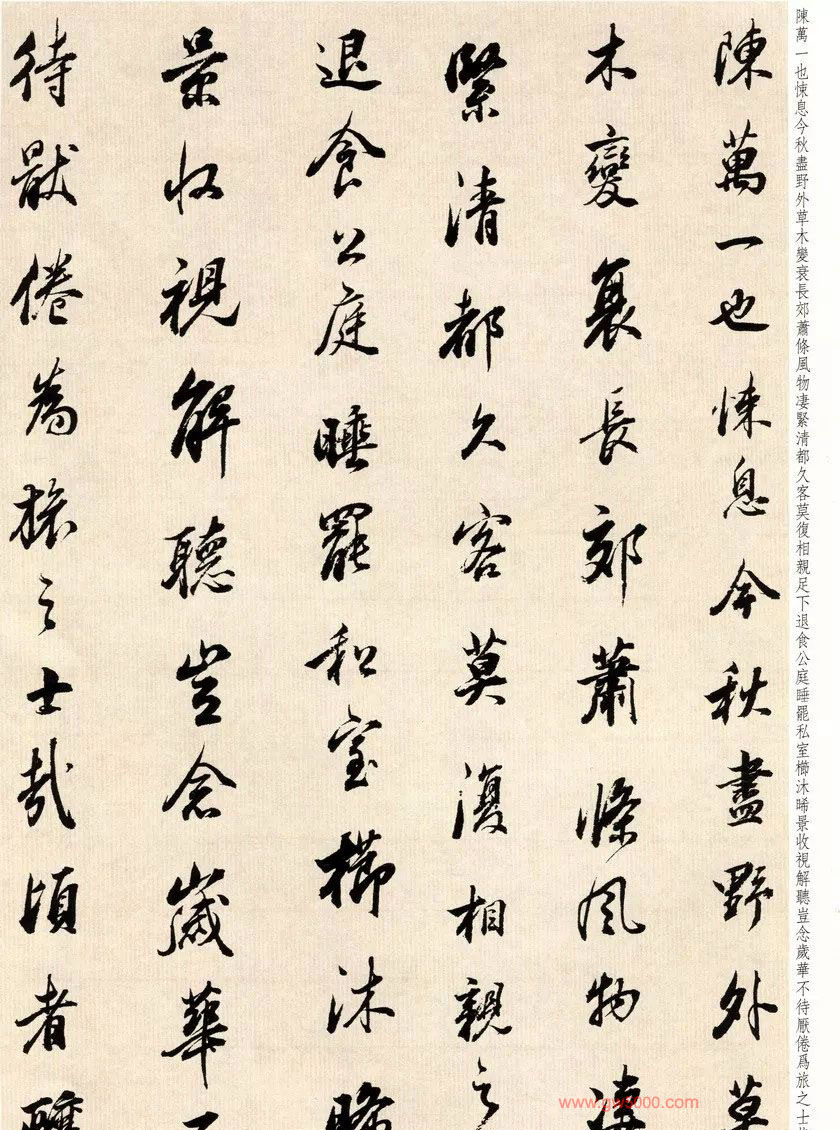 陳萬一也悚息今秋盡野外草木變衰長郊蕭條風物凄緊清都久客莫復相親足下退食公庭睡罷私室櫛沐晞景收視解聽豈念歲華不待厭倦爲旅之士
陳萬一也悚息今秋盡野外草
木變衰長郊蕭條風物凄
緊清都久客莫復相親足
退食公庭睡罷私室櫛沐晞
景收視解聽豈念歲華不
待厭倦為旅之士哉頃者